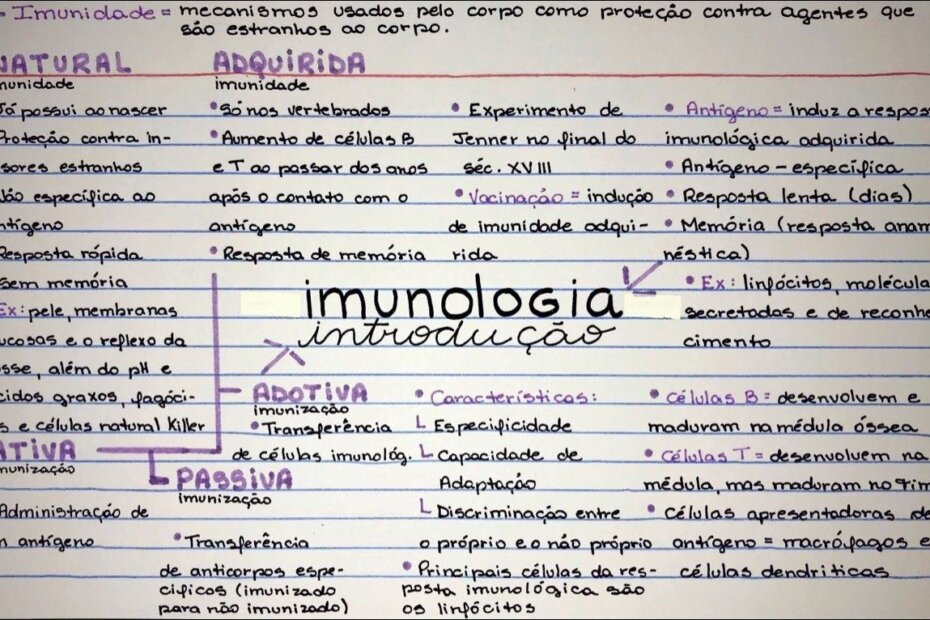 - Imunidade = mecanismos usados pelo corpo como proteção contra agentes que
são estranhos ao corpo.
NATURAL
munidade
Já possui ao nascer
Proteção contra in-
sores estranhos
Não específica ao
ntígeno
Resposta rápida
sem memória
Ex: pele, membranas
ucosas e o reflexo da
sse, além do pH e
cidos graxos, fagóci-
s e células natural killer
ADQUIRIDA
imunidade
• Só nos vertebrados
• Aumento de células B
e T ao passar dos anos
após o contato com o
antígeno
• Resposta de memória
• Experimento de
Jenner no final do
séc. XVIII
• Vacinação = indução
de imunidade adqui-
rida
• Antígeno = induz a respos
imunológica adquirida
• Antígeno - específica
• Resposta lenta (dias)
• Memória (resposta anam
néstica)
• Ex: linfócitos, molécula
secretadas e de reconhe
cimento
imunologia
introdução
ATIVA
munização
Administração de
m antígeno
PASSIVA
imunização
• Transferência
de anticorpos espe-
cíficos (imunizado
para não imunizado)
ADOTIVA
imunização
• Transferência
de células imunológ.
• Características:
└ Especificidade
└ Capacidade de
Adaptação
└ Discriminação entre
o próprio e o não próprio
• Principais células da res-
posta imunológica são
os linfócitos
• Células B = desenvolvem e
maduram na médula óssea
• Células T = desenvolvem na
médula, mas maduram no tim
• Células apresentadoras de
antígeno = macrófagos e
células dendriticas